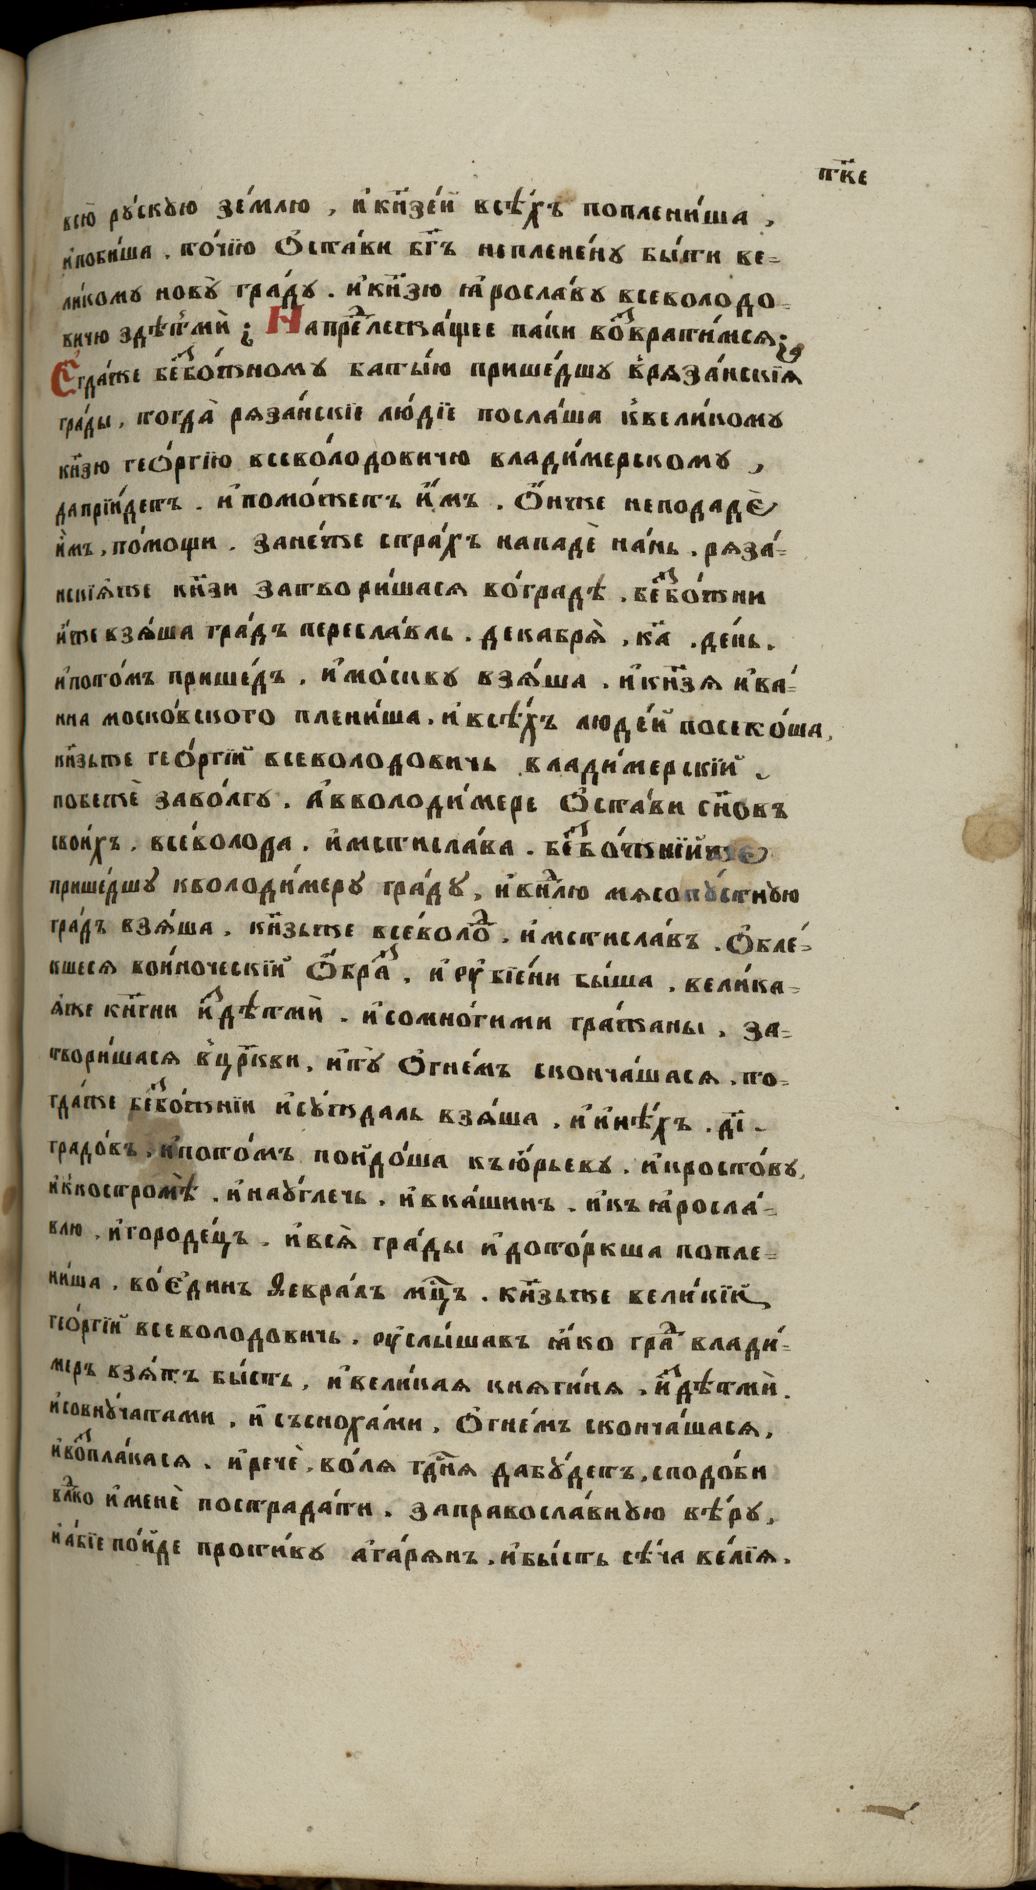 тк҃е
всю̀ рꙋ́скꙋю зе́млю , и҆кн҃зе́й всѣ́хъ поплени́ша ,
и҆поби́ша , то́чїю ѡ҆ста́ви бг҃ъ непленє́нꙋ бы́ти ве=
ли́комꙋ новꙋ̀ гра́дꙋ . и҆кн҃зю ꙗ҆росла́вꙋ всеволодо=
вичю здѣтмѝ ; Напреⷣлежа́щее па́ки воⷥврати́мсѧ ;
Є҆гда́же беⷥбо́жномꙋ баты́ю прише́дшꙋ в̾рѧза́нскїѧ
гра́ды , тогда̀ рѧза́нскїе лю́дїе посла́ша к̾вели́комꙋ
кн҃зю гео́ргїю все́володовичю влади́мерскомꙋ ,
дапрїи́детъ . и҆помо́жетъ и҆́мъ . ѻ҆́нже неподадѐ
и҆̀мъ , по́мощи . зане́же стра́хъ нападѐ на́нь . рѧза́=
нскїѧже кн҃зи затвори́шасѧ во́градѣ . беⷥбо́жни
и҆́же взѧ́ша гра́дъ пересла́вль . декабрѧ̀ , к҃а . де́нь .
и҆пото́мъ прише́дъ . и҆мо́сквꙋ взѧ́ша . и҆кн҃зѧ и҆ва́=
нна моско́вского плени́ша . и҆всѣ́хъ люде́й посеко́ша ,
кн҃зьже гео́ргїй всеволодовичь влади́мерскїй
побежѐ заво́лгꙋ . а҆вволоди́мере ѡ҆ста́ви сн҃овъ
свои́хъ . все́волода . и҆мстисла́ва . беⷥбо́жнїйже
прише́дшꙋ кволоди́мерꙋ гра́дꙋ , и҆внⷣлю мѧсопꙋ́стнꙋю
гра́дъ взѧ́ша . кн҃зьже все́волоⷣ . и҆мстисла́въ . ѡ҆бле́=
кшесѧ вои́ноческїй ѡ҆́браⷥ , и҆ ᲂу҆бїе́ни бы́ша . вели́ка=
ѧ́же кн҃гни иⷥдѣтмѝ . и҆сомно́гими гра́жаны . за=
твори́шасѧ в̾цр҃кви , и҆тꙋ̀ ѻ҆гне́мъ сконча́шасѧ . то=
гда́же беⷥбо́жнїи и҆сꙋ́ждаль взѧ́ша . и҆ и҆нѣ́хъ . д҃і
градо́въ . и҆пото́мъ пойдо́ша къю҆́рьевꙋ . и҆кросто́вꙋ ,
и҆ккостромѣ̀ . и҆наꙋ́глечь . и҆вка́шинъ . и҆къ ꙗ҆росла́=
влю , и҆городе́цъ . и҆всѧ̀ гра́ды и҆доторкша попле=
ни́ша . во́є҆динъ ѳевра́ль мц҃ъ . кн҃зьже вели́кїй
гео́ргїй всеволодовичь . ᲂу҆слы́шавъ ꙗ҆́ко граⷣ влади́=
меръ взѧ́тъ бы́сть , и҆вели́каѧ княги́нѧ . иⷥдѣтмѝ .
и҆совнꙋ́чатами , и҆ съсноха́ми , ѻ҆гне́мъ сконча́шасѧ ,
и҆воⷥпла́касѧ . и҆речѐ , во́лѧ гдⷭ҇нѧ дабꙋ́детъ , сподо́би
влⷣко и҆менѐ пострада́ти . заправосла́внꙋю вѣ́рꙋ ,
и҆а́бїе по́йде проти́вꙋ а҆га́рѧнъ . и҆бы́сть сѣ́ча ве́лїѧ .